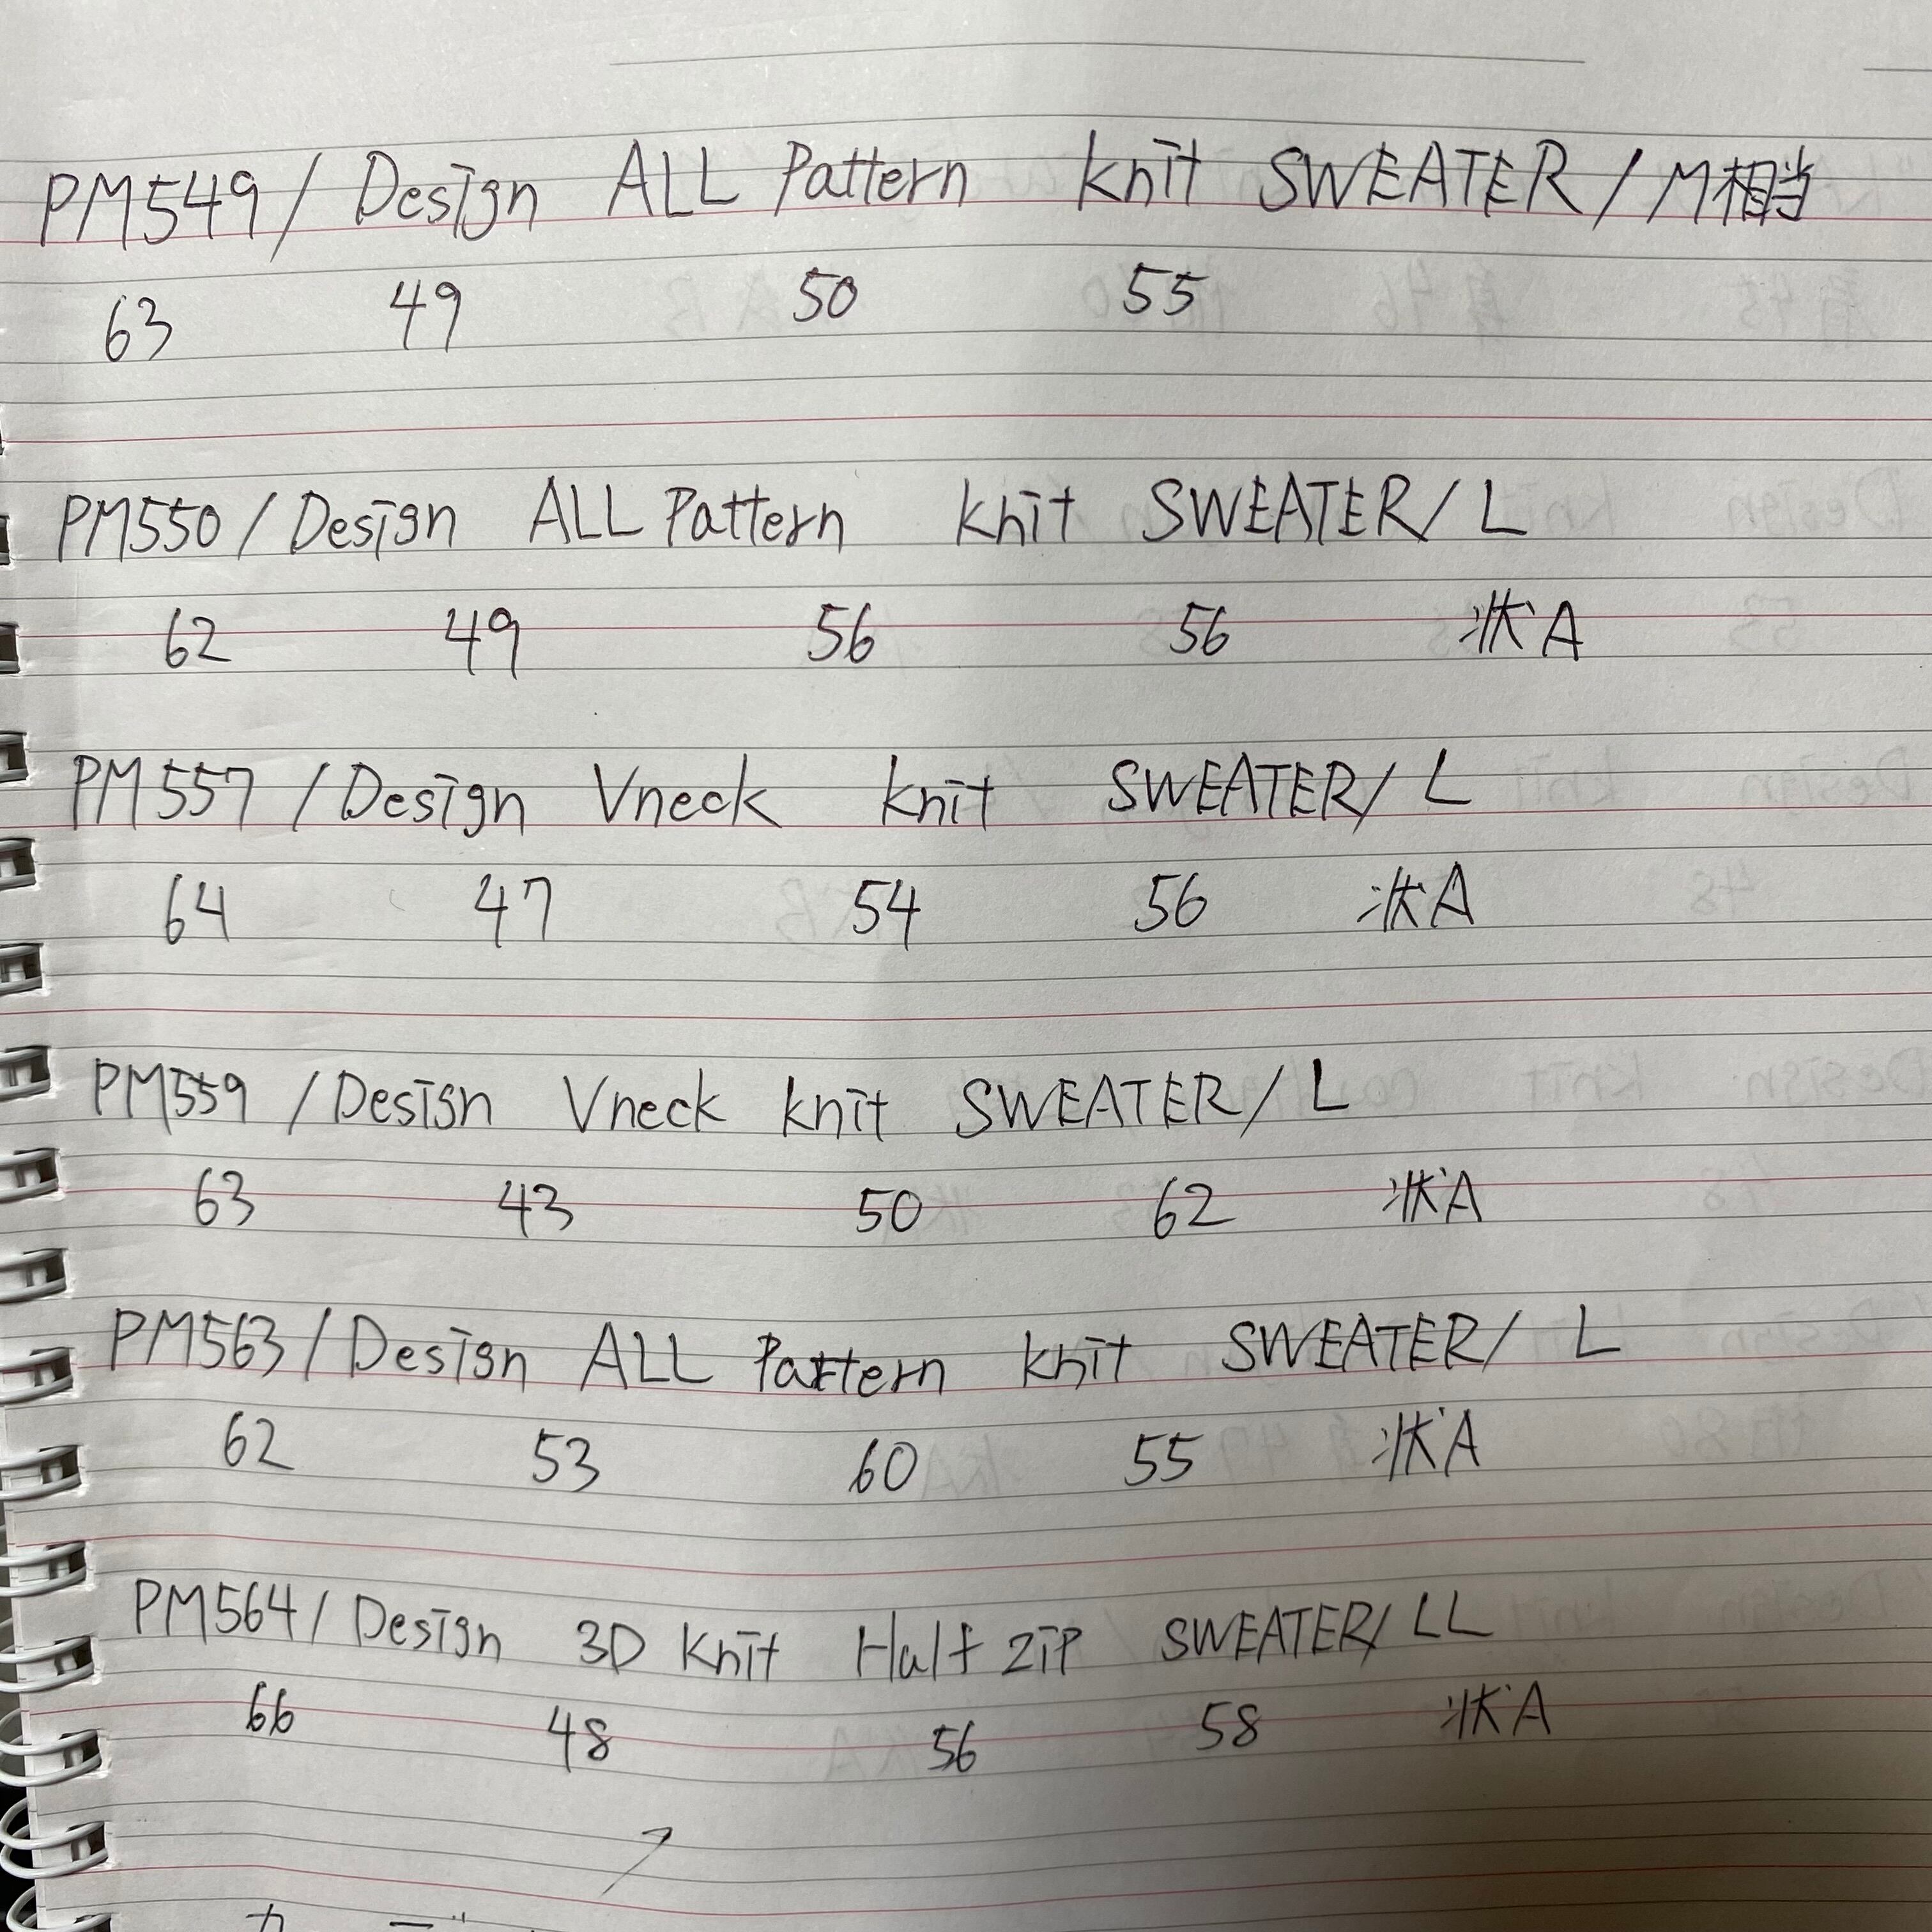 PM549/Design ALL Pattern knit SWEATER/M相当
63 49 50 55
PM550/Design ALL Pattern knit SWEATER/L
62 49 56 56 状A
PM557/Design Vneck knit SWEATER/L
64 47 54 56 状A
PM559/Design Vneck knit SWEATER/L
63 43 50 62 状A
PM563/Design ALL Pattern knit SWEATER/L
62 53 60 55 状A
PM564/Design 3D Knit Half zip SWEATER/LL
66 48 56 58 状A